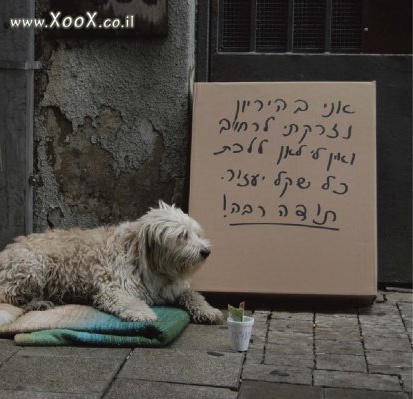 www.XooX.co.il
אני בהיריון
נזרקתי לרחוב
ואין לי לאן ללכת
כל שקל יעזור.
תודה רבה!